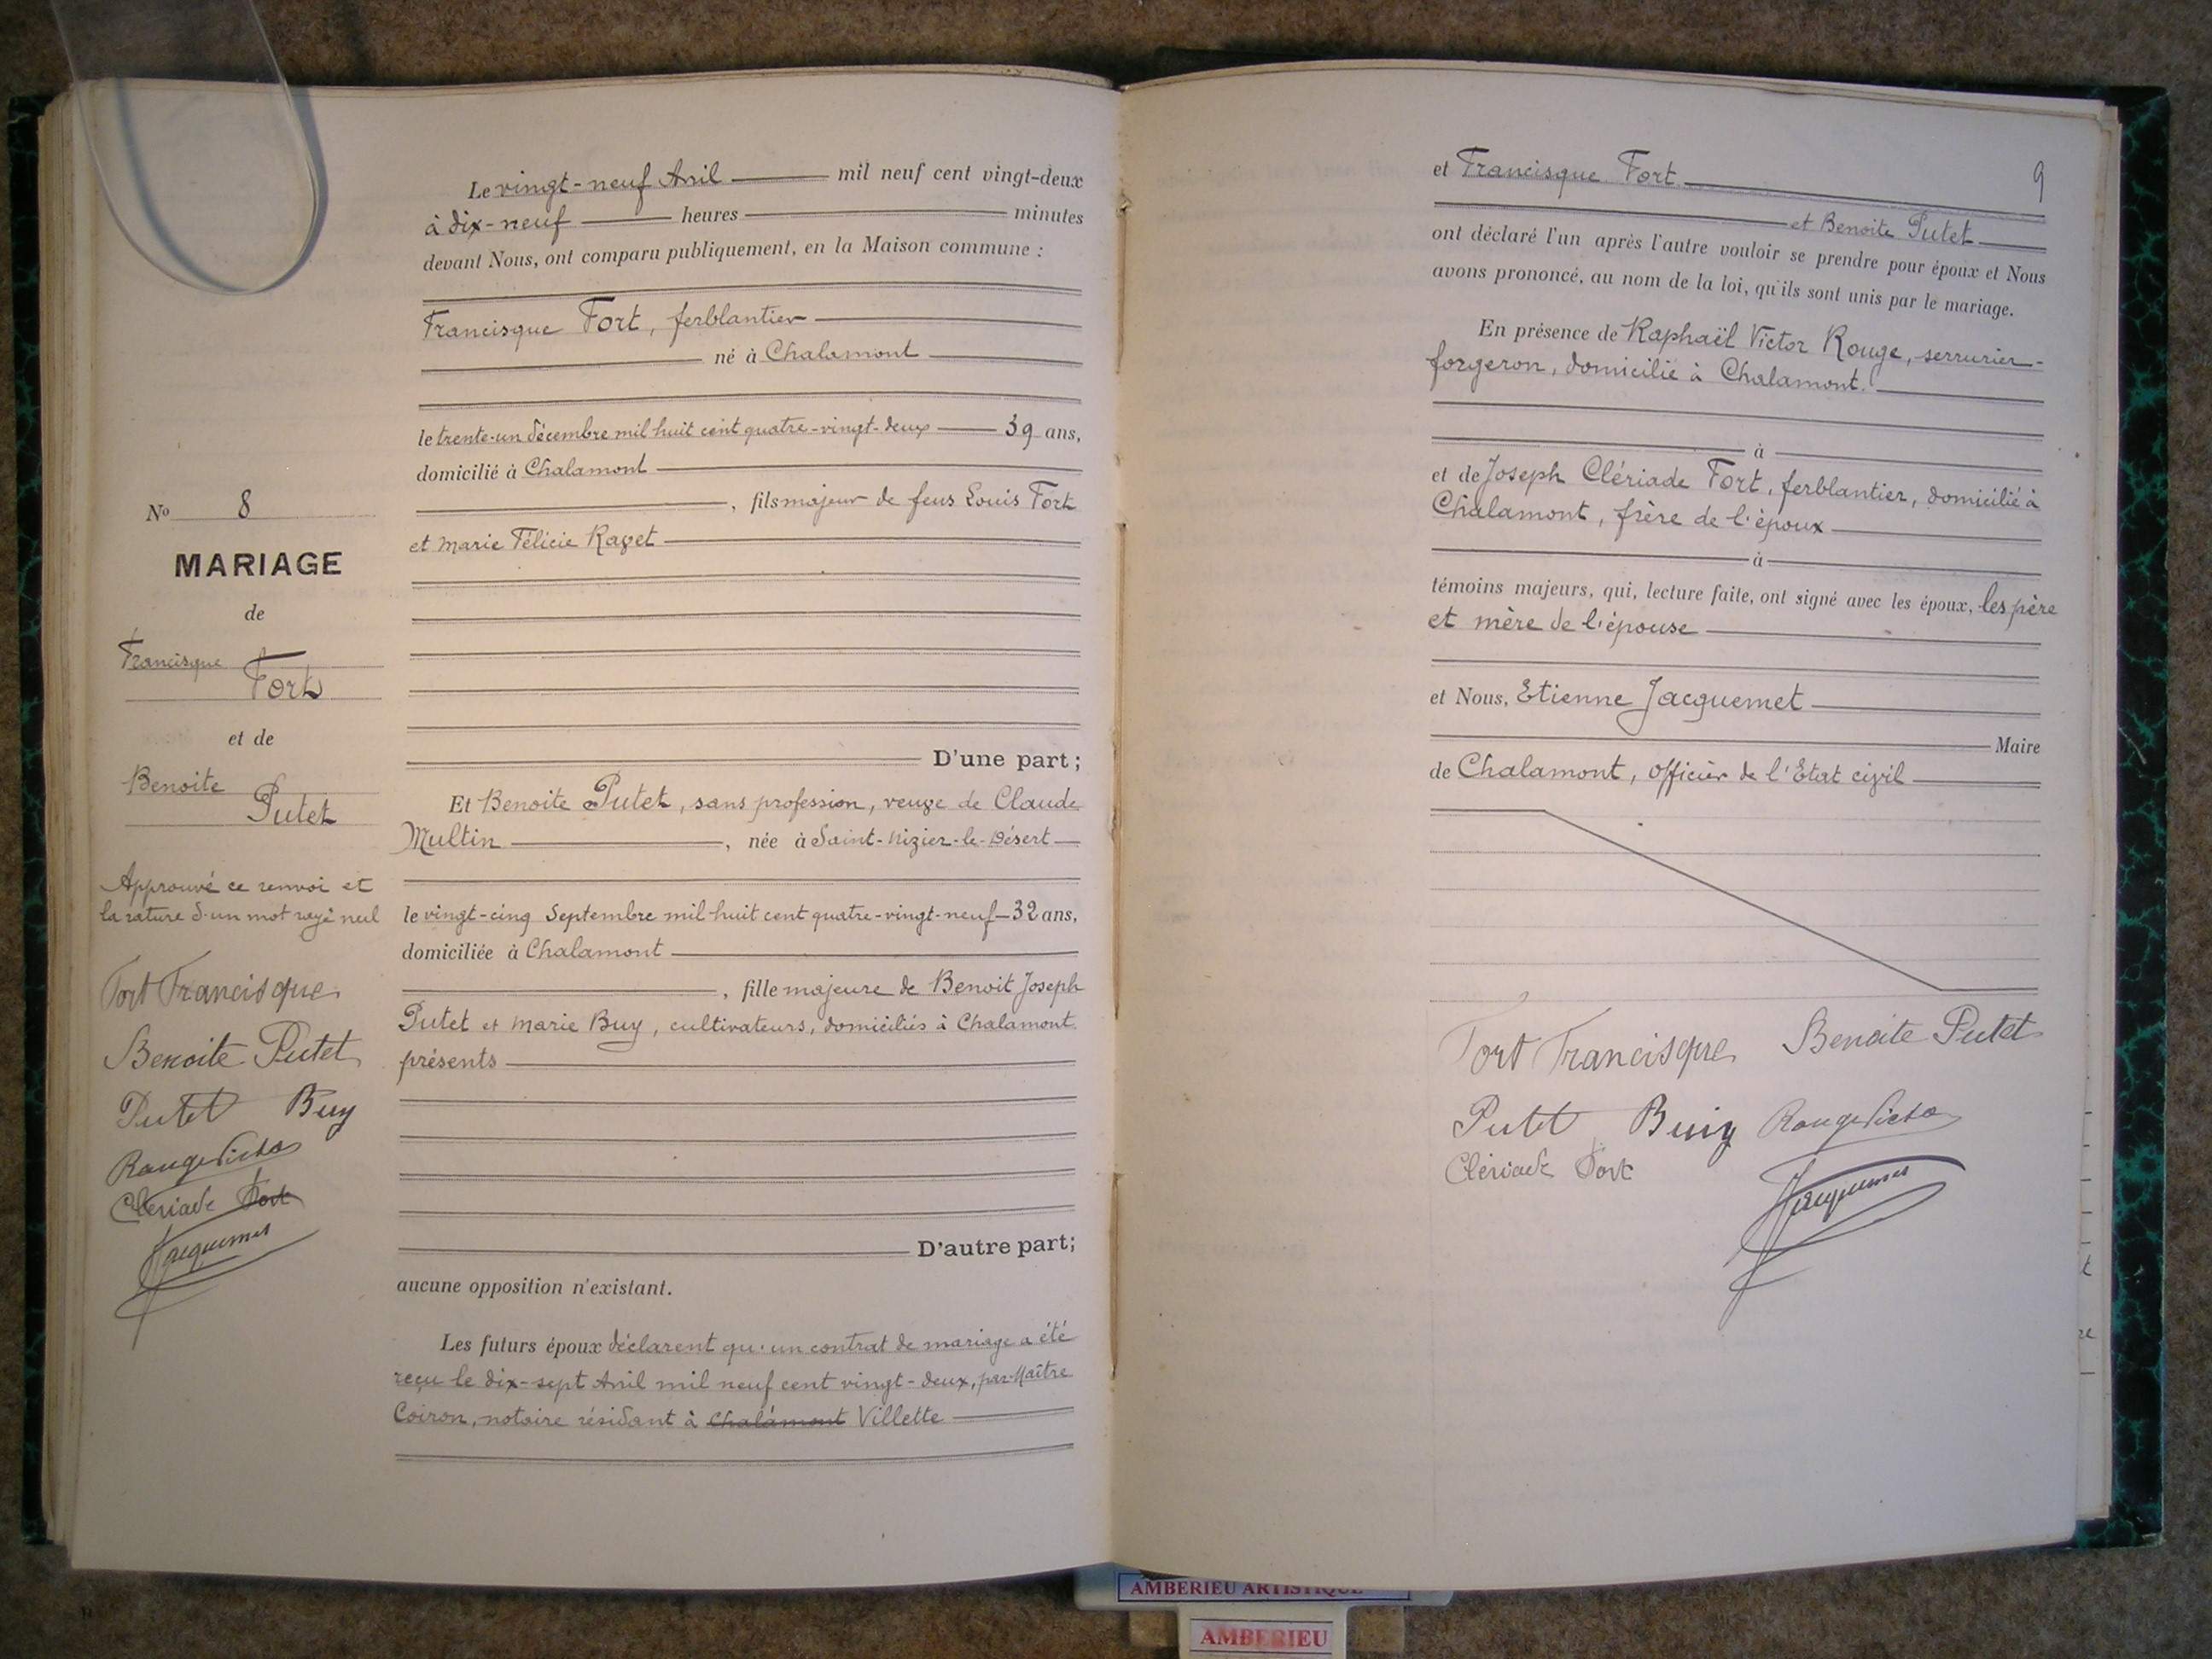 Le vingt-neuf Avril mil neuf cent vingt-deux
à dix-neuf heures minutes
devant Nous, ont comparu publiquement, en la Maison commune :
Francisque Fort, ferblantier
né à Chalamont
le trente-un décembre mil huit cent quatre-vingt-deux 39 ans,
domicilié à Chalamont
, fils majeur de feus Louis Fort
et Marie Félicie Ravet
D'une part ;
Et Benoite Putet, sans profession, veuve de Claude
Multin , née à Saint-Nizier-le-Désert
le vingt-cinq Septembre mil huit cent quatre-vingt-neuf 32 ans,
domiciliée à Chalamont
, fille majeure de Benoit Joseph
Putet et Marie Buy, cultivateurs, domiciliés à Chalamont
présents
D'autre part;
aucune opposition n'existant.
Les futurs époux déclarent qu'un contrat de mariage a été
reçu le dix-sept Avril mil neuf cent vingt-deux, par Maître
Coiron, notaire résidant à Chalamont Villette
No 8
MARIAGE
de
Francisque
Fort
et de
Benoite
Putet
Approuvé ce renvoi et
la rature d'un mot rayé nul
Fort Francisque
Benoite Putet
Putet Buy
Rouge Victor
Clériade Fort
Jacquemet
9
et Francisque Fort
et Benoite Putet
ont déclaré l'un après l'autre vouloir se prendre pour époux et Nous
avons prononcé, au nom de la loi, qu'ils sont unis par le mariage.
En présence de Raphaël Victor Rouge, serrurier-
forgeron, domicilié à Chalamont.
à
et de Joseph Clériade Fort, ferblantier, domicilié à
Chalamont, frère de l'époux
à
témoins majeurs, qui, lecture faite, ont signé avec les époux, les père
et mère de l'épouse
et Nous, Etienne Jacquemet
Maire
de Chalamont, officier de l'Etat civil
Fort Francisque Benoite Putet
Putet Buy Rouge Victor
Clériade Fort
Jacquemet
AMBERIEU ARTISTIQUE
AMBERIEU